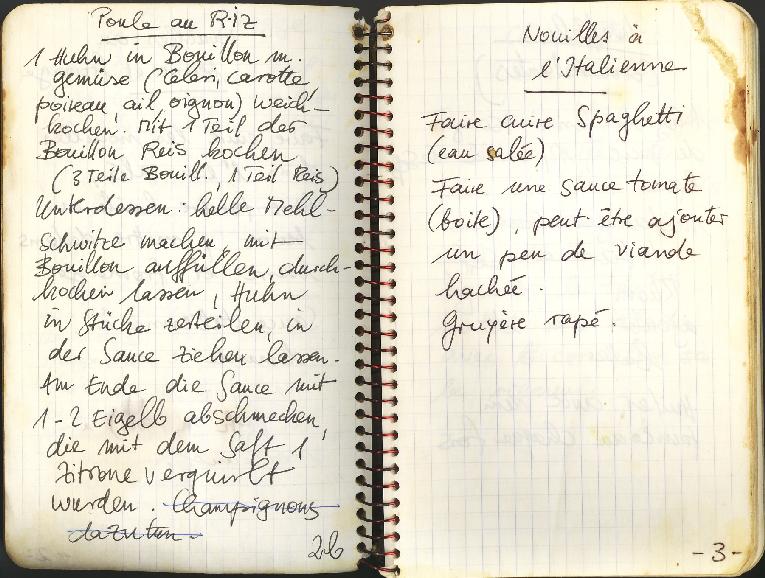 Poule au Riz
1 Huhn in Bouillon m.
gemüse (Celeri, carotte,
poireau, ail, oignon) weich-
kochen. Mit 1 Teil der
Bouillon Reis kochen
(3 Teile Bouill., 1 Teil Reis)
Unterdessen: helle Mehl-
schwitze machen, mit
Bouillon auffüllen, durch-
kochen lassen, Huhn
in Stücke zerteilen, in
der Sauce ziehen lassen.
Am Ende die Sauce mit
1-2 Eigelb abschmecken,
die mit dem Saft 1
Zitrone verquirlt
wurden. Champignons
dazutun.
2b
Nouilles à
l'Italienne
Faire cuire Spaghetti
(eau salée)
Faire une sauce tomate
(boite), peut être ajouter
un peu de viande
hachée.
Gruyère rapé.
-3-